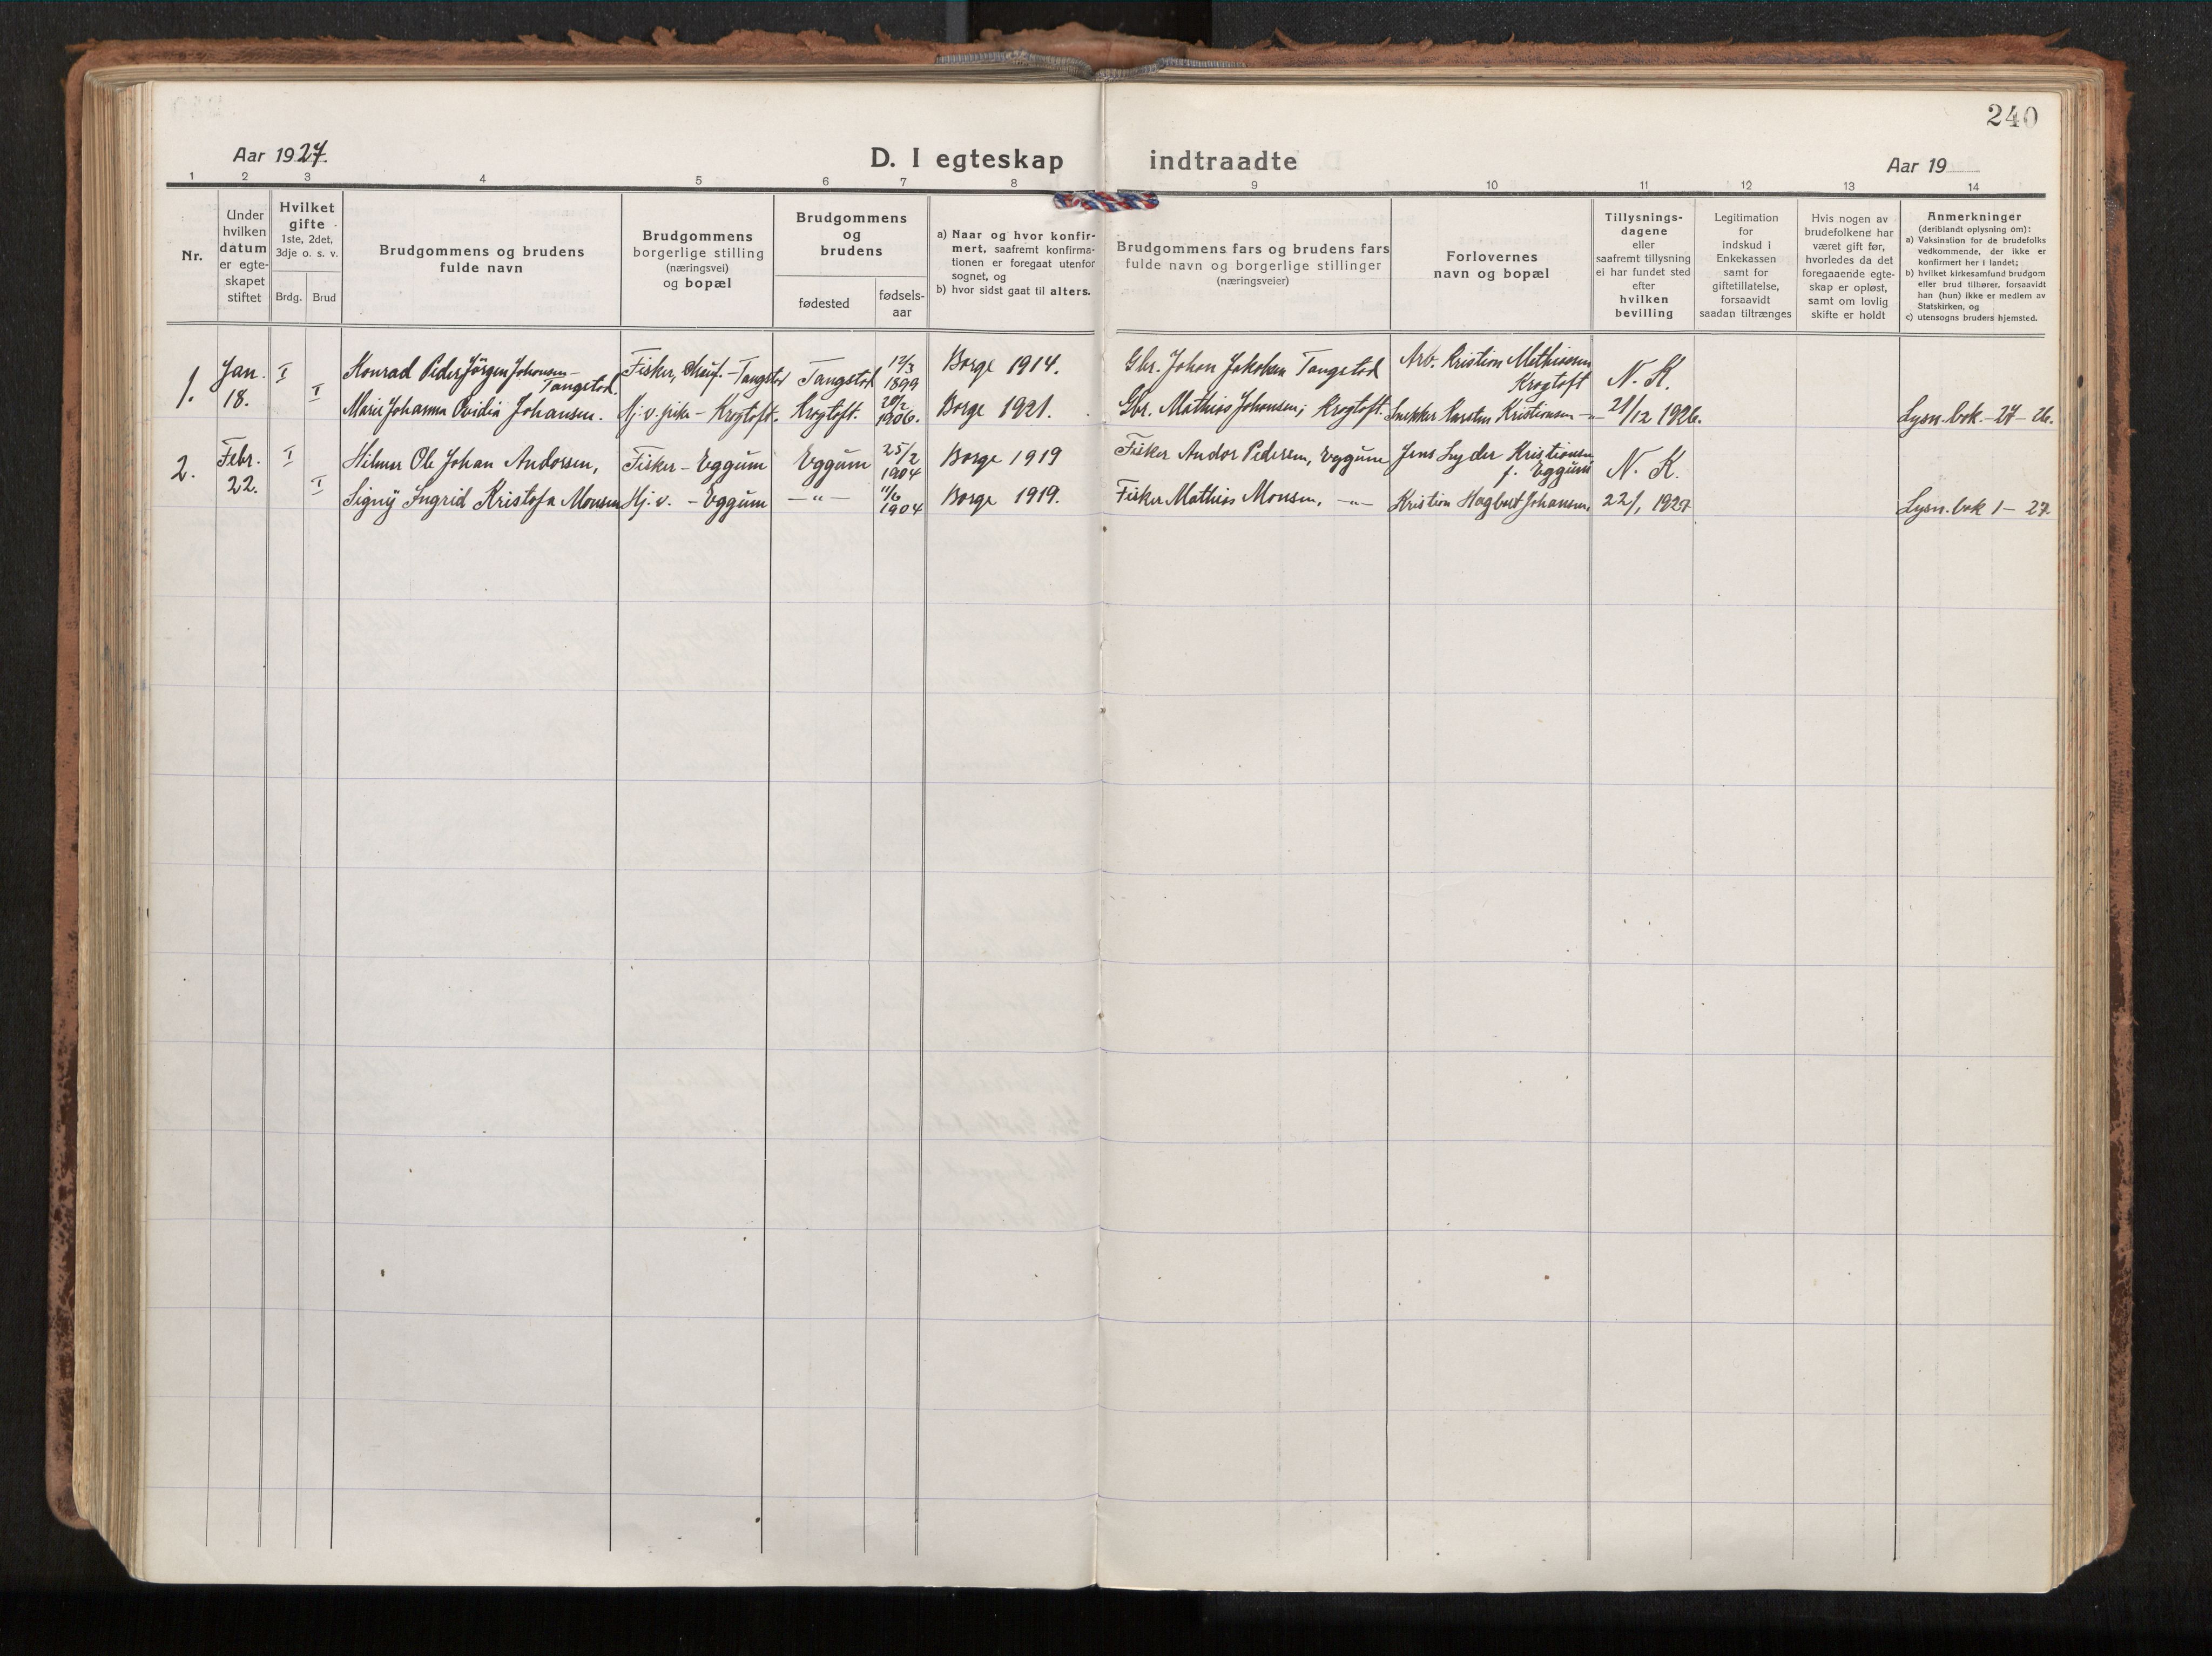 240
Aar 1927.
D. I egteskap indtraadte
Aar 19
1 2 3 4 5 6 7 8 9 10 11 12 13 14
Nr.
Under
hvilken
datum
er egte-
skapet
stiftet
Hvilket
gifte
1ste, 2det,
3dje o. s. v.
Brdg. Brud
Brudgommens og brudens
fulde navn
Brudgommens
borgerlige stilling
(næringsvei)
og bopæl
Brudgommens
og
brudens
fødested
fødsels-
aar
a) Naar og hvor konfir-
mert, saafremt konfirma-
tionen er foregaat utenfor
sognet, og
b) hvor sidst gaat til alters.
Brudgommens fars og brudens fars
fulde navn og borgerlige stillinger
(næringsveier)
Forlovernes
navn og bopæl
Tillysnings-
dagene
eller
saafremt tillysning
ei har fundet sted
efter
hvilken
bevilling
Legitimation
for
indskud i
Enkekassen
samt for
giftetillatelse,
forsaavidt
saadan tiltrænges
Hvis nogen av
brudefolkene har
været gift før,
hvorledes da det
foregaaende egte-
skap er opløst,
samt om lovlig
skifte er holdt
Anmerkninger
(deriblandt oplysning om):
a) Vaksination for de brudefolks
vedkommende, der ikke er
konfirmert her i landet;
b) hvilket kirkesamfund brudgom
eller brud tilhører, forsaavidt
han (hun) ikke er medlem av
Statskirken, og
c) utensogns bruders hjemsted.
1.
Jan.
18.
I
I
Konrad Peder Jörgen Johansen-
Tangstad.
Fisker, Chauf. - Tangstad
Tangstad
12/3
1899
Borge 1914.
Gbr. Johan Jakobsen Tangstad
Arb. Kristian Mathiassen
Krogtoft
N. K.
Marie Johanna Ovidia Johansen.
Hj. v. fisk. - Krogtoft.
Krogtoft.
20/2
1906.
Borge 1921.
Gbr. Mathias Johansen, Krogtoft.
Snekker Karsten Kristiansen - " -
21/12 1926.
Lysn. bok. - 27 - 26.
2.
Febr.
22.
I
I
Hilmar Ole Johan Andorsen,
Fisker - Eggum
Eggum
25/2
1904
Borge 1919
Fisker Andor Pedersen, Eggum
Jens Lyder Kristiansen
f. Eggum
N. K.
Signy Ingrid Kristofa Monsen
Hj. v. - Eggum
- " -
11/6
1904
Borge 1919.
Fisker Mathias Monsen, - " -
Kristian Hagbart Johansen,
22/1 1927
Lysn. bok 1 - 27.